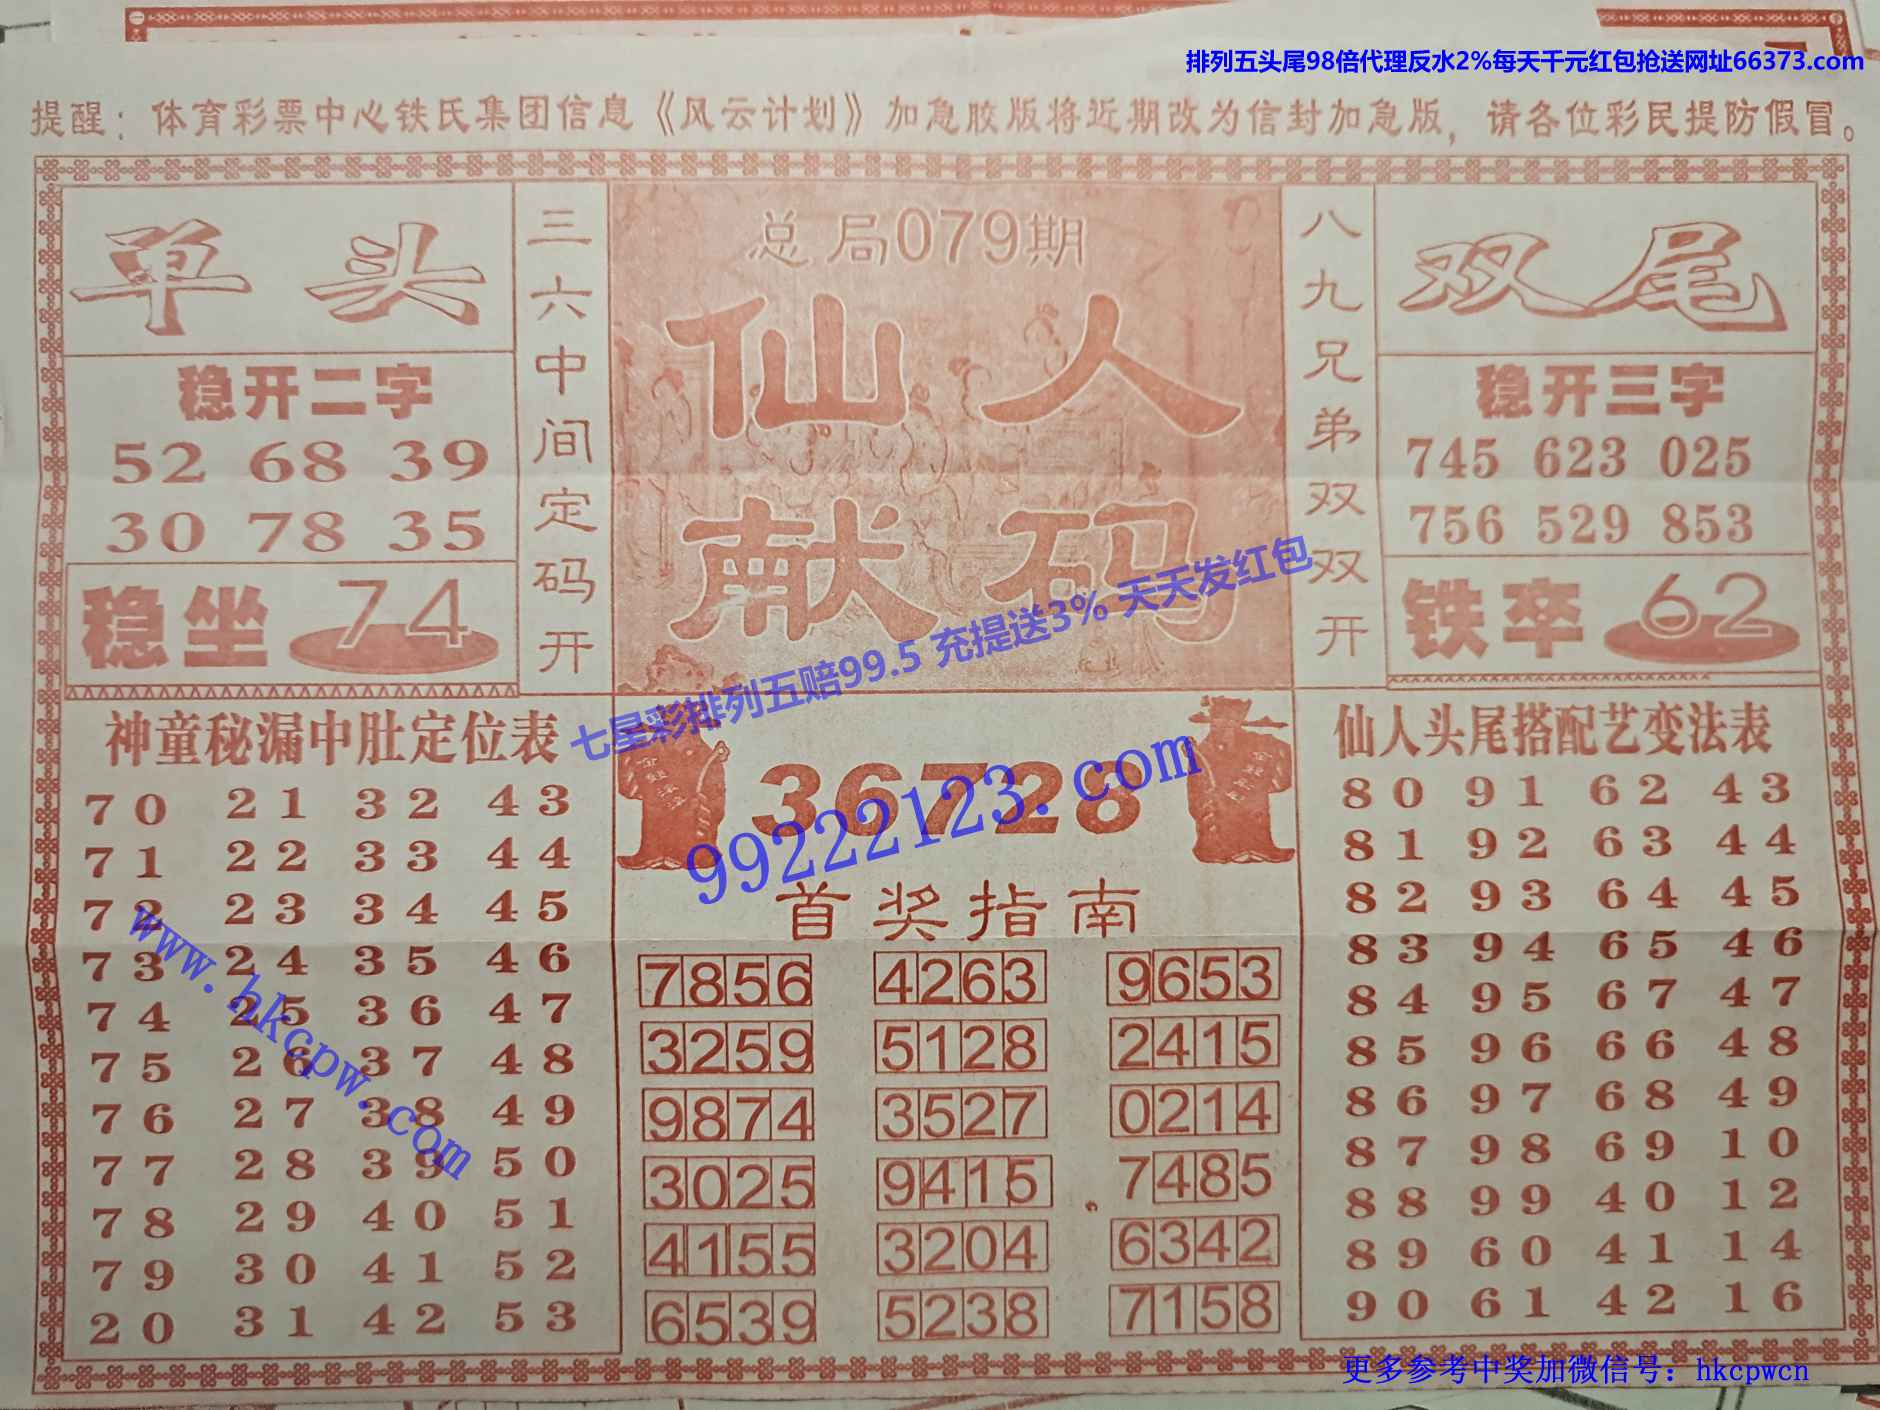 排列五头尾98倍代理反水2%每天千元红包抢送网址66373.com
提醒：体育彩票中心铁氏集团信息《风云计划》加急胶版将近期改为信封加急版，请各位彩民提防假冒。
单头
稳开二字
52 68 39
30 78 35
稳坐 74
三六中间定码开
总局079期
仙人
献码
八九兄弟双双开
双尾
稳开三字
745 623 025
756 529 853
铁卒 62
七星彩排列五赔99.5 充提送3% 天天发红包
神童秘漏中肚定位表
70 21 32 43
71 22 33 44
72 23 34 45
73 24 35 46
74 25 36 47
75 26 37 48
76 27 38 49
77 28 39 50
78 29 40 51
79 30 41 52
20 31 42 53
www.hkcpw.com
36728
99222123.com
首奖指南
7856 4263 9653
3259 5128 2415
9874 3527 0214
3025 9415 7485
4155 3204 6342
6539 5238 7158
仙人头尾搭配艺变法表
80 91 62 43
81 92 63 44
82 93 64 45
83 94 65 46
84 95 67 47
85 96 66 48
86 97 68 49
87 98 69 10
88 99 40 12
89 60 41 14
90 61 42 16
更多参考中奖加微信号：hkcpwcn